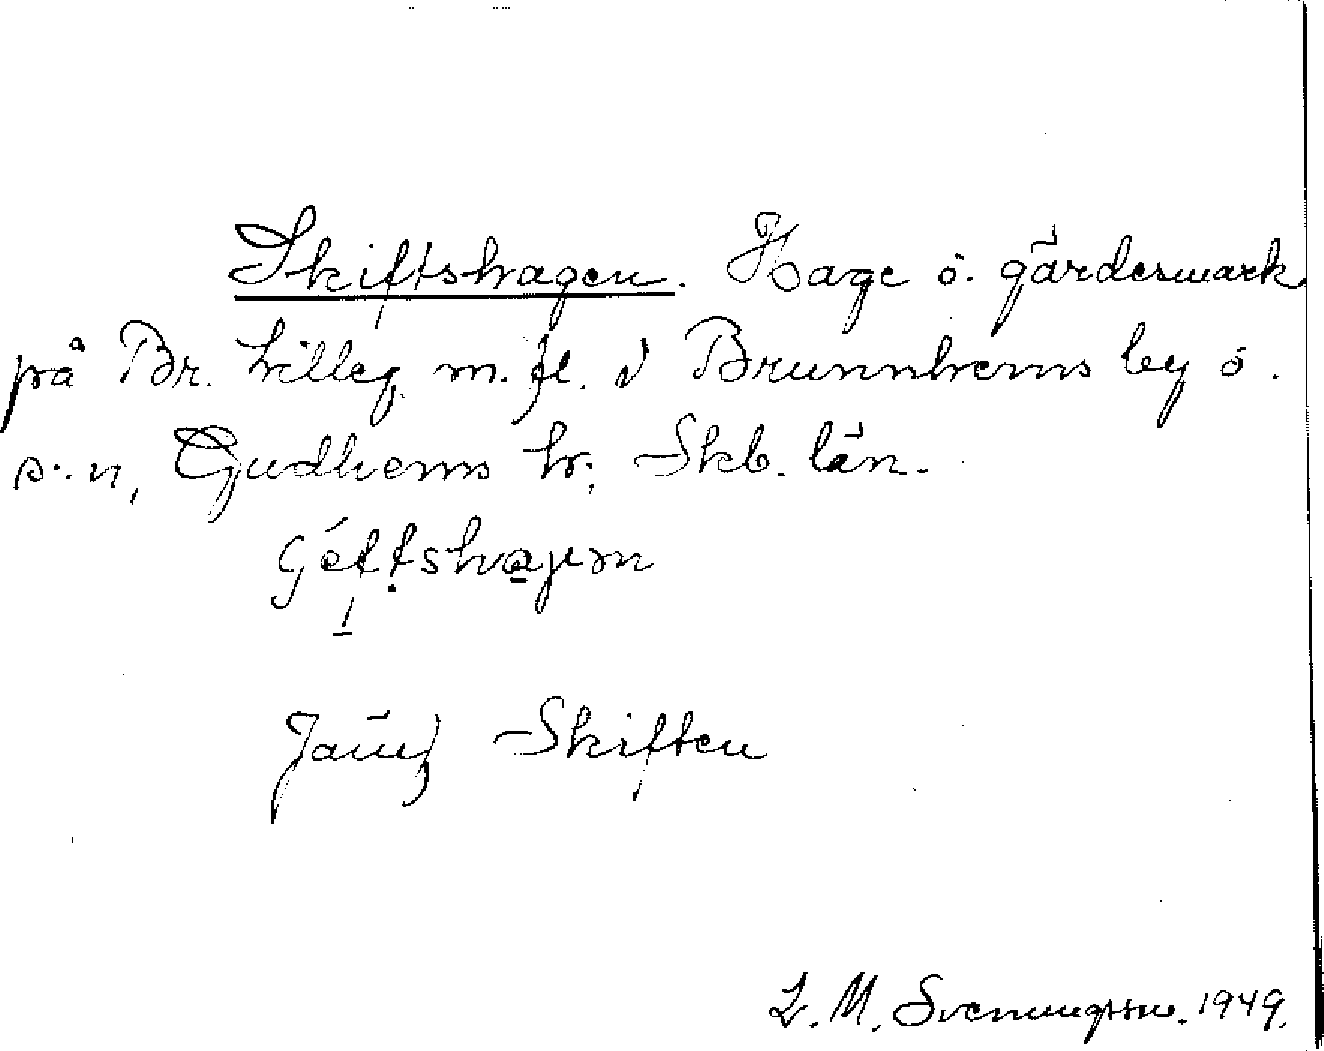 Skiftshagen. Hage o. gärdesmark
på Br. Lilleg. m. fl. i Brunnhems by o.
s:n, Gudhems hd; Skb. län.
Jämf Skiften
L. M. Svenungsson. 1949.